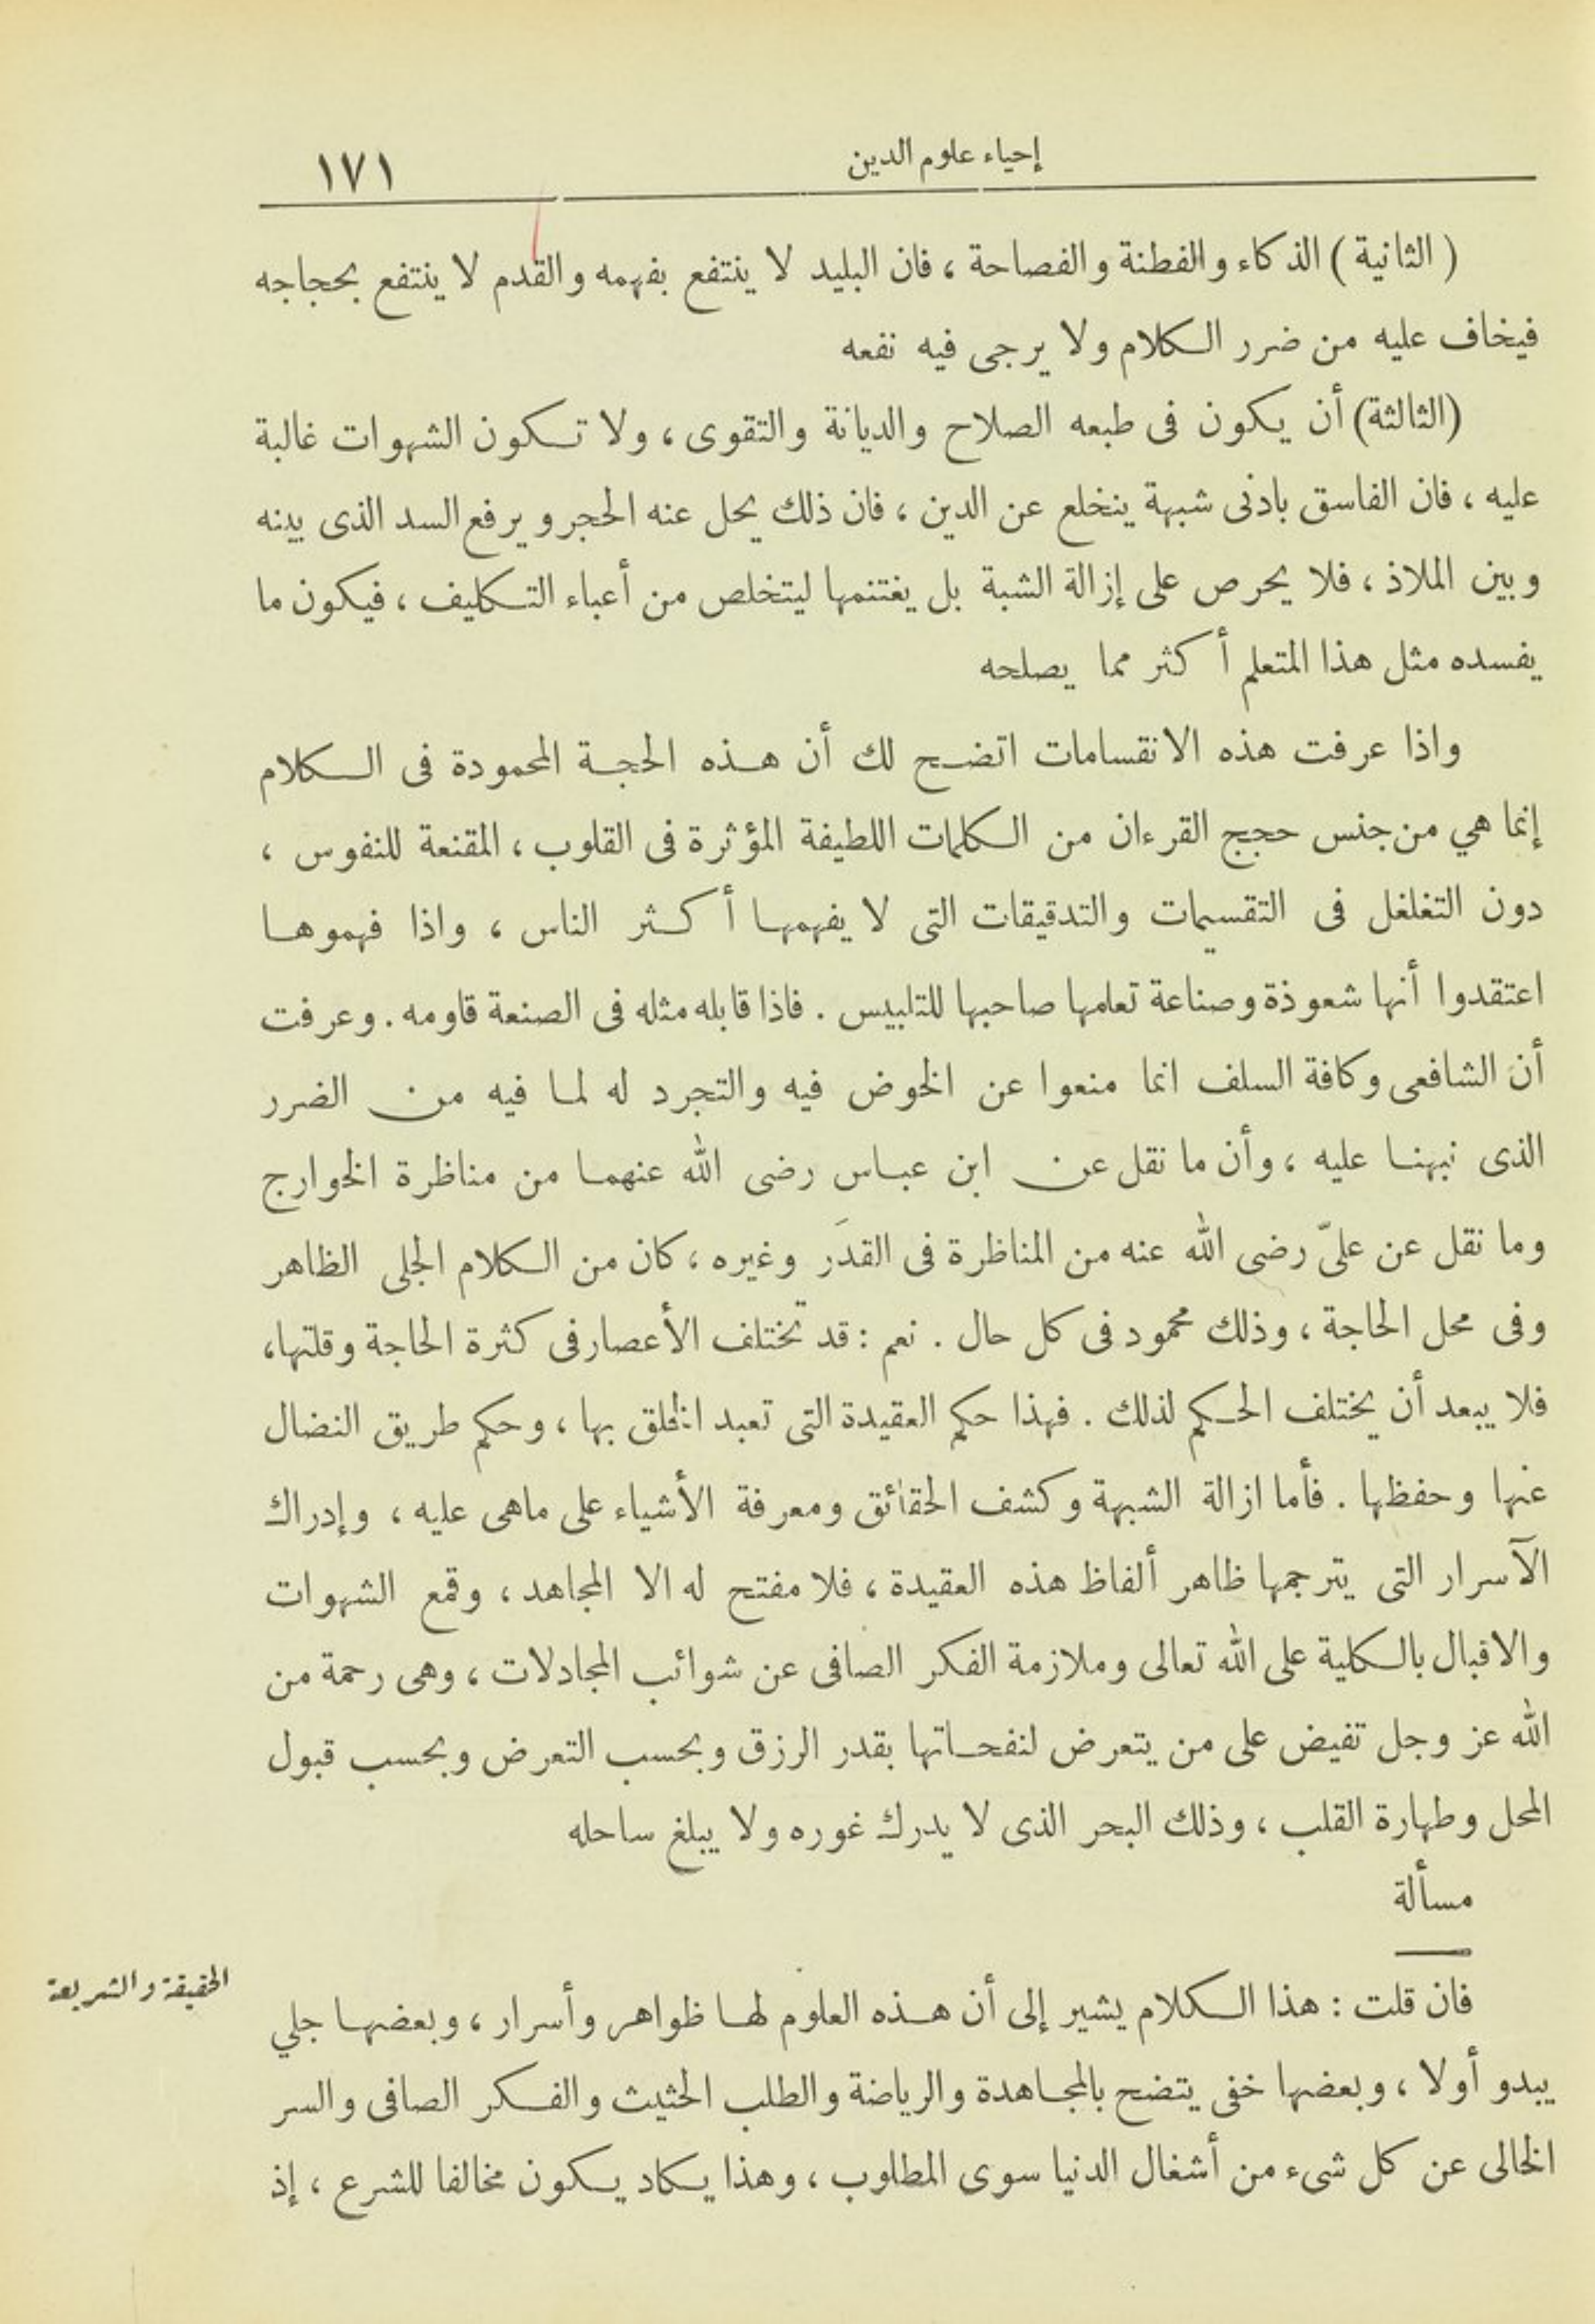 إحياء علوم الدين
١٧١
( الثانية ) الذكاء والفطنة والفصاحة ، فان البليد لا ينتفع بفهمه والقدم لا ينتفع بحجاجه
فيخاف عليه من ضرر الكلام ولا يرجى فيه نفعه
(الثالثة) أن يكون فى طبعه الصلاح والديانة والتقوى ، ولا تكون الشهوات غالبة
عليه ، فان الفاسق بادنى شبهة ينخلع عن الدين ، فان ذلك يحل عنه الحجر ويرفع السد الذى بينه
وبين الملاذ ، فلا يحرص على إزالة الشبة بل يغتنمها ليتخلص من أعباء التكليف ، فيكون ما
يفسده مثل هذا المتعلم أكثر مما يصلحه
واذا عرفت هذه الانقسامات اتضح لك أن هذه الحجة المحمودة فى الكلام
إنما هي من جنس حجج القرءان من الكلمات اللطيفة المؤثرة فى القلوب ، المقنعة للنفوس ،
دون التغلغل فى التقسيمات والتدقيقات التى لا يفهمها أكثر الناس ، واذا فهموها
اعتقدوا أنها شعوذة وصناعة تعلمها صاحبها للتلبيس . فاذا قابله مثله فى الصنعة قاومه . وعرفت
أن الشافعى وكافة السلف انما منعوا عن الخوض فيه والتجرد له لما فيه من الضرر
الذى نبهنا عليه ، وأن ما نقل عن ابن عباس رضى الله عنهما من مناظرة الخوارج
وما نقل عن علىّ رضى الله عنه من المناظرة فى القدَر وغيره ، كان من الكلام الجلى الظاهر
وفى محل الحاجة ، وذلك محمود فى كل حال . نعم : قد تختلف الأعصار فى كثرة الحاجة وقلتها،
فلا يبعد أن يختلف الحكم لذلك . فهذا حكم العقيدة التى تعبد الخلق بها ، وحكم طريق النضال
عنها وحفظها . فأما ازالة الشبهة وكشف الحقائق ومعرفة الأشياء على ماهى عليه ، وإدراك
الآسرار التى يترجمها ظاهر ألفاظ هذه العقيدة ، فلا مفتح له الا المجاهد ، وقمع الشهوات
والاقبال بالكلية على الله تعالى وملازمة الفكر الصافى عن شوائب المجادلات ، وهى رحمة من
الله عز وجل تفيض على من يتعرض لنفحاتها بقدر الرزق وبحسب التعرض وبحسب قبول
المحل وطهارة القلب ، وذلك البحر الذى لا يدرك غوره ولا يبلغ ساحله
مسألة
الحقيقة والشريعة
فان قلت : هذا الكلام يشير إلى أن هذه العلوم لها ظواهر وأسرار ، وبعضها جلي
يبدو أولا ، وبعضها خفى يتضح بالمجاهدة والرياضة والطلب الحثيث والفكر الصافى والسر
الخالى عن كل شىء من أشغال الدنيا سوى المطلوب ، وهذا يكاد يكون مخالفا للشرع ، إذ